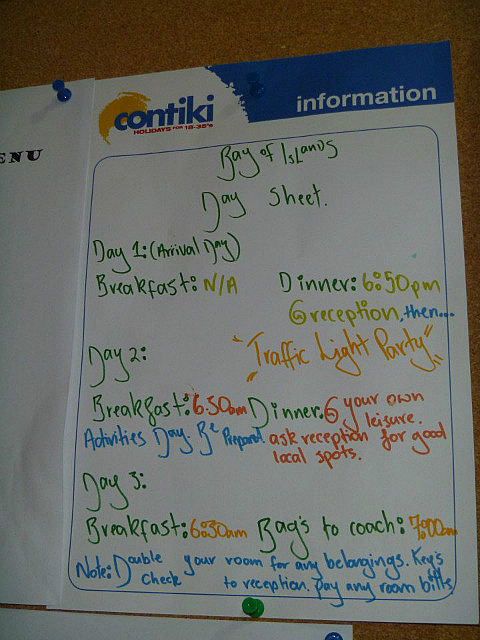 ENU
contiki
HOLIDAYS FOR 18-35's
information
Bay of Islands
Day Sheet.
Day 1: (Arrival Day)
Breakfast: N/A Dinner: 6:50pm
@ reception, then...
"Traffic Light Party"
Day 2:
Breakfast: 6.50am Dinner: @ your own leisure.
Activities Day. Be Prepared. ask reception for good
local spots.
Day 3:
Breakfast: 6:30am Bag's to coach: 7:00am
Note: Double your room for any belongings. Key's
check to reception. pay any room bills